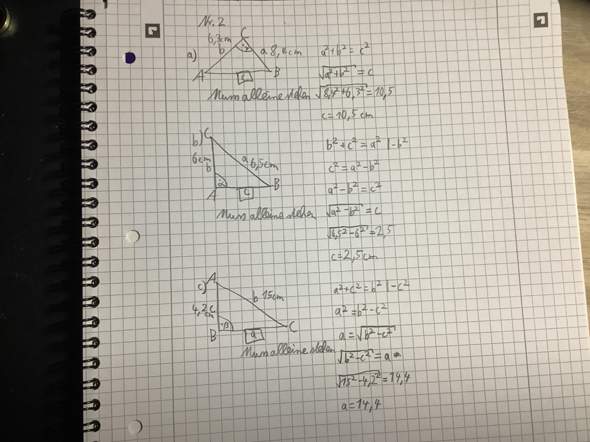 Nr. 2
a)
C
6,3cm
b
a 8,4cm
A
c
B
a²+b²=c²
√a²+b² = c
Muss alleine stehen √8,4²+6,3² = 10,5
c = 10,5 cm
b)
C
6cm
b
a 6,5cm
α
A
c
B
b²+c² = a² |-b²
c² = a²-b²
a²-b² = c²
Muss alleine stehen √a²-b² = c
√6,5²-6² = 2,5
c = 2,5cm
c)
A
b 15cm
4,2 c
cm
β
B
a
C
a²+c² = b² |-c²
a² = b²-c²
a = √b²-c²
Muss alleine stehen √b²-c² = a
√15²-4,2² = 14,4
a = 14,4